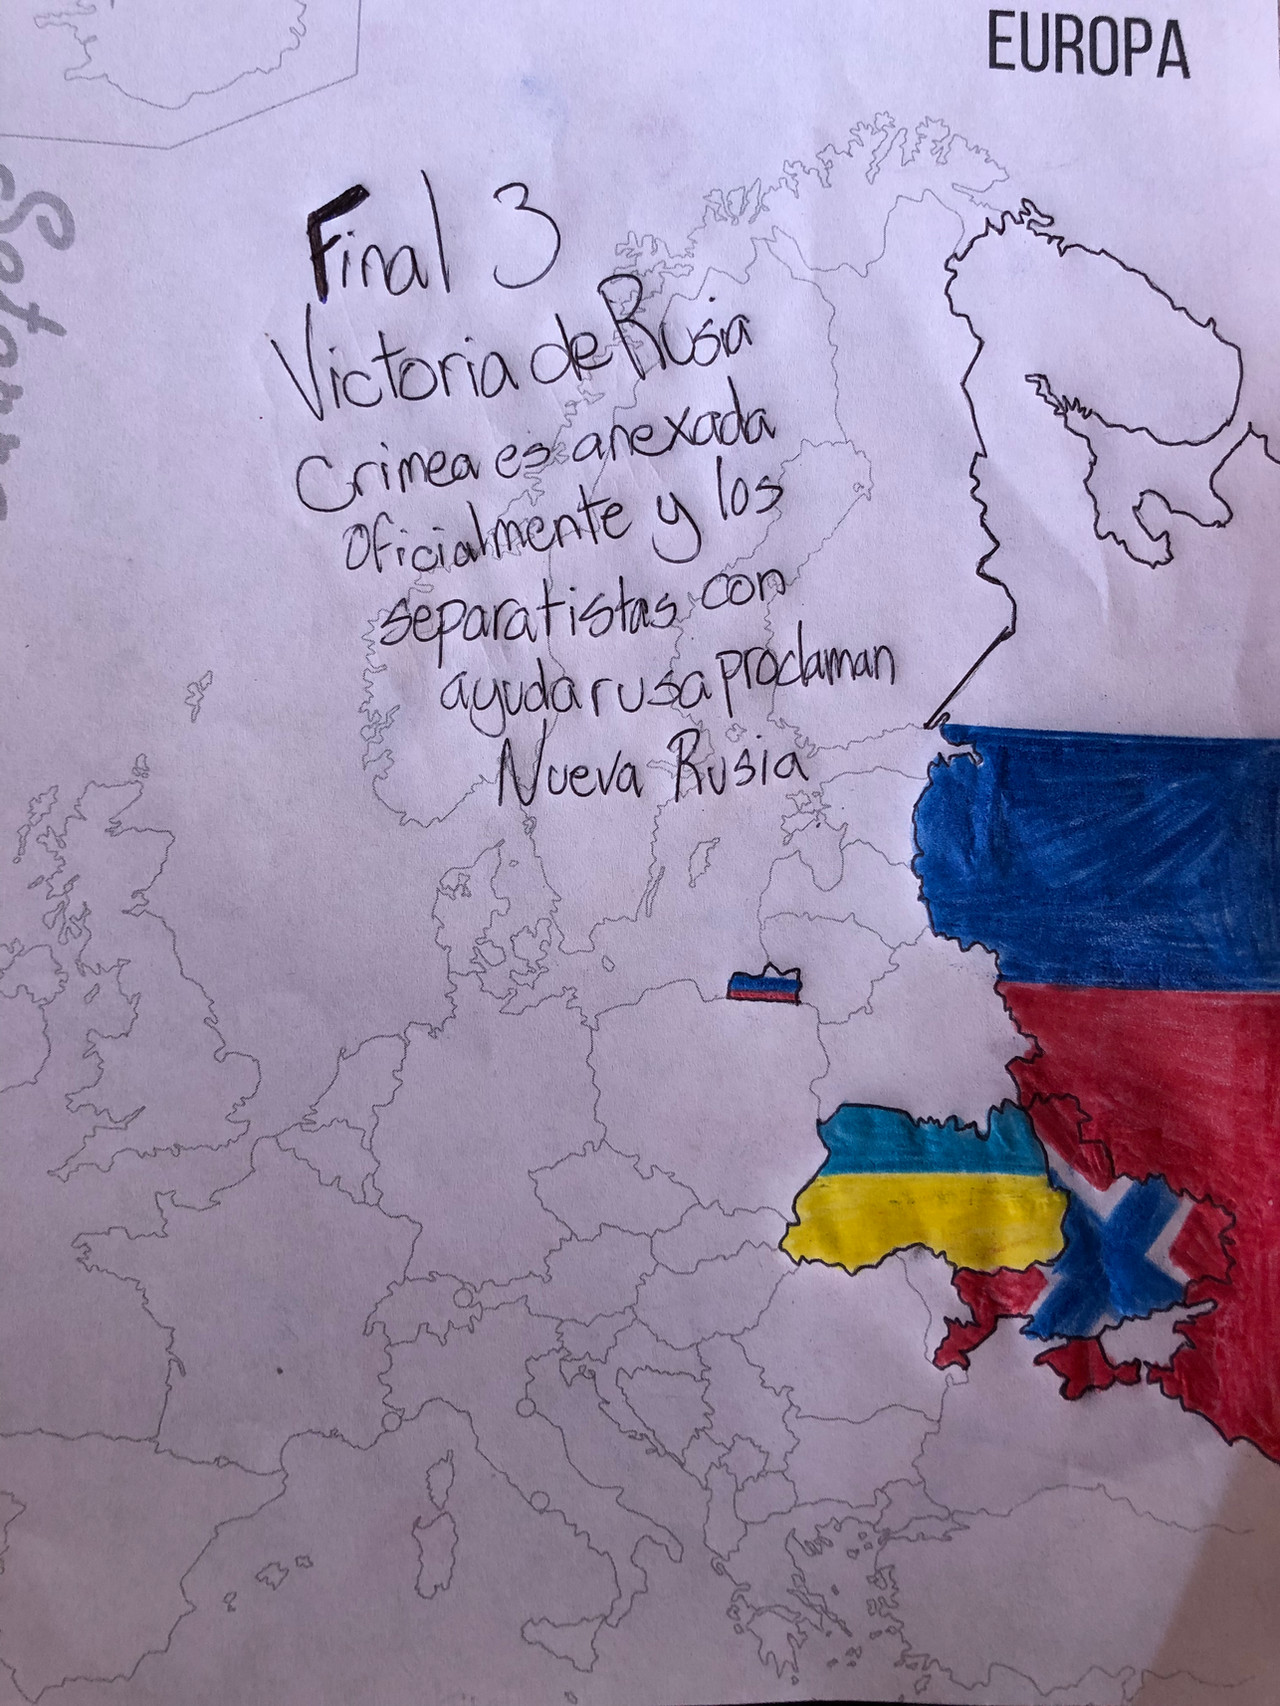 EUROPA
Final 3
Victoria de Rusia
Crimea es anexada
Oficialmente y los
separatistas con
ayuda rusa proclaman
Nueva Rusia